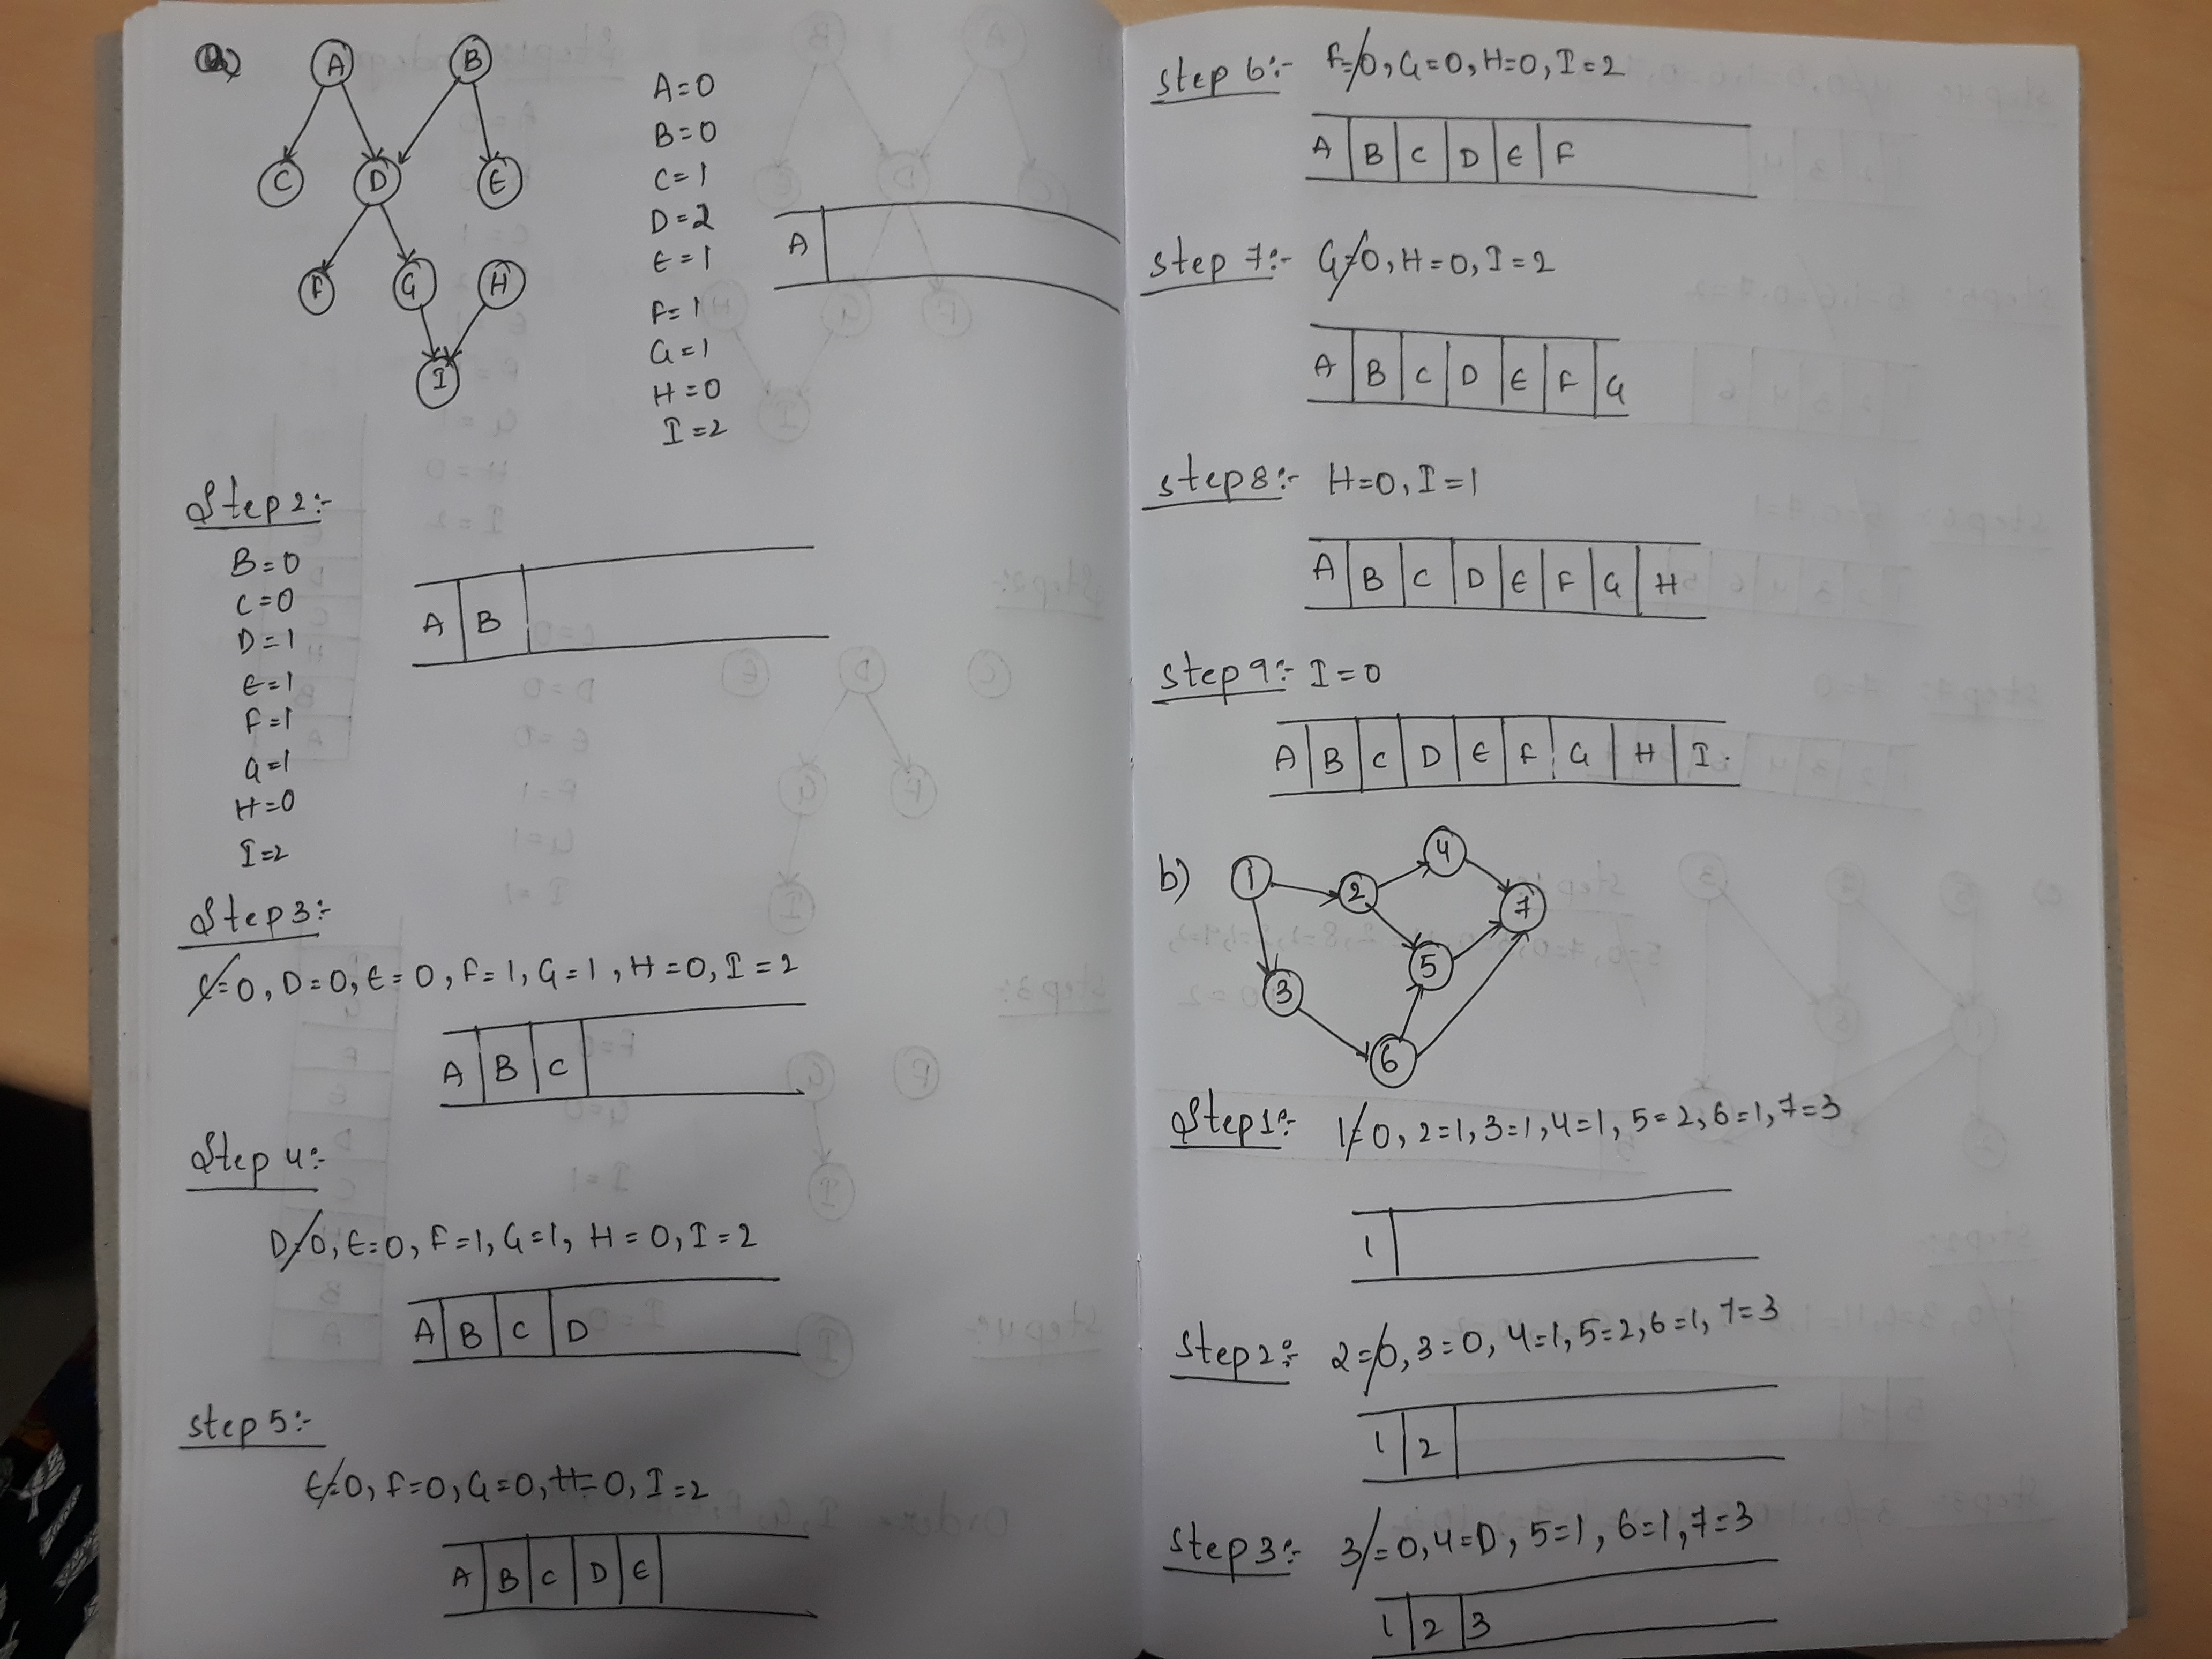 a)
A
B
C
D
E
F
G
H
I
A=0
B=0
C=1
D=2
E=1
F=1
G=1
H=0
I=2
A
Step 2:-
B=0
C=0
D=1
E=1
F=1
G=1
H=0
I=2
A B
Step 3:-
C=0, D=0, E=0, F=1, G=1, H=0, I=2
A B C
Step 4:-
D=0, E=0, F=1, G=1, H=0, I=2
A B C D
Step 5:-
E=0, F=0, G=0, H=0, I=2
A B C D E
Step 6:- F=0, G=0, H=0, I=2
A B C D E F
Step 7:- G=0, H=0, I=2
A B C D E F G
Step 8:- H=0, I=1
A B C D E F G H
Step 9:- I=0
A B C D E F G H I
b)
1
2
3
4
5
6
7
Step 1:- 1=0, 2=1, 3=1, 4=1, 5=2, 6=1, 7=3
1
Step 2:- 2=0, 3=0, 4=1, 5=2, 6=1, 7=3
1 2
Step 3:- 3=0, 4=0, 5=1, 6=1, 7=3
1 2 3